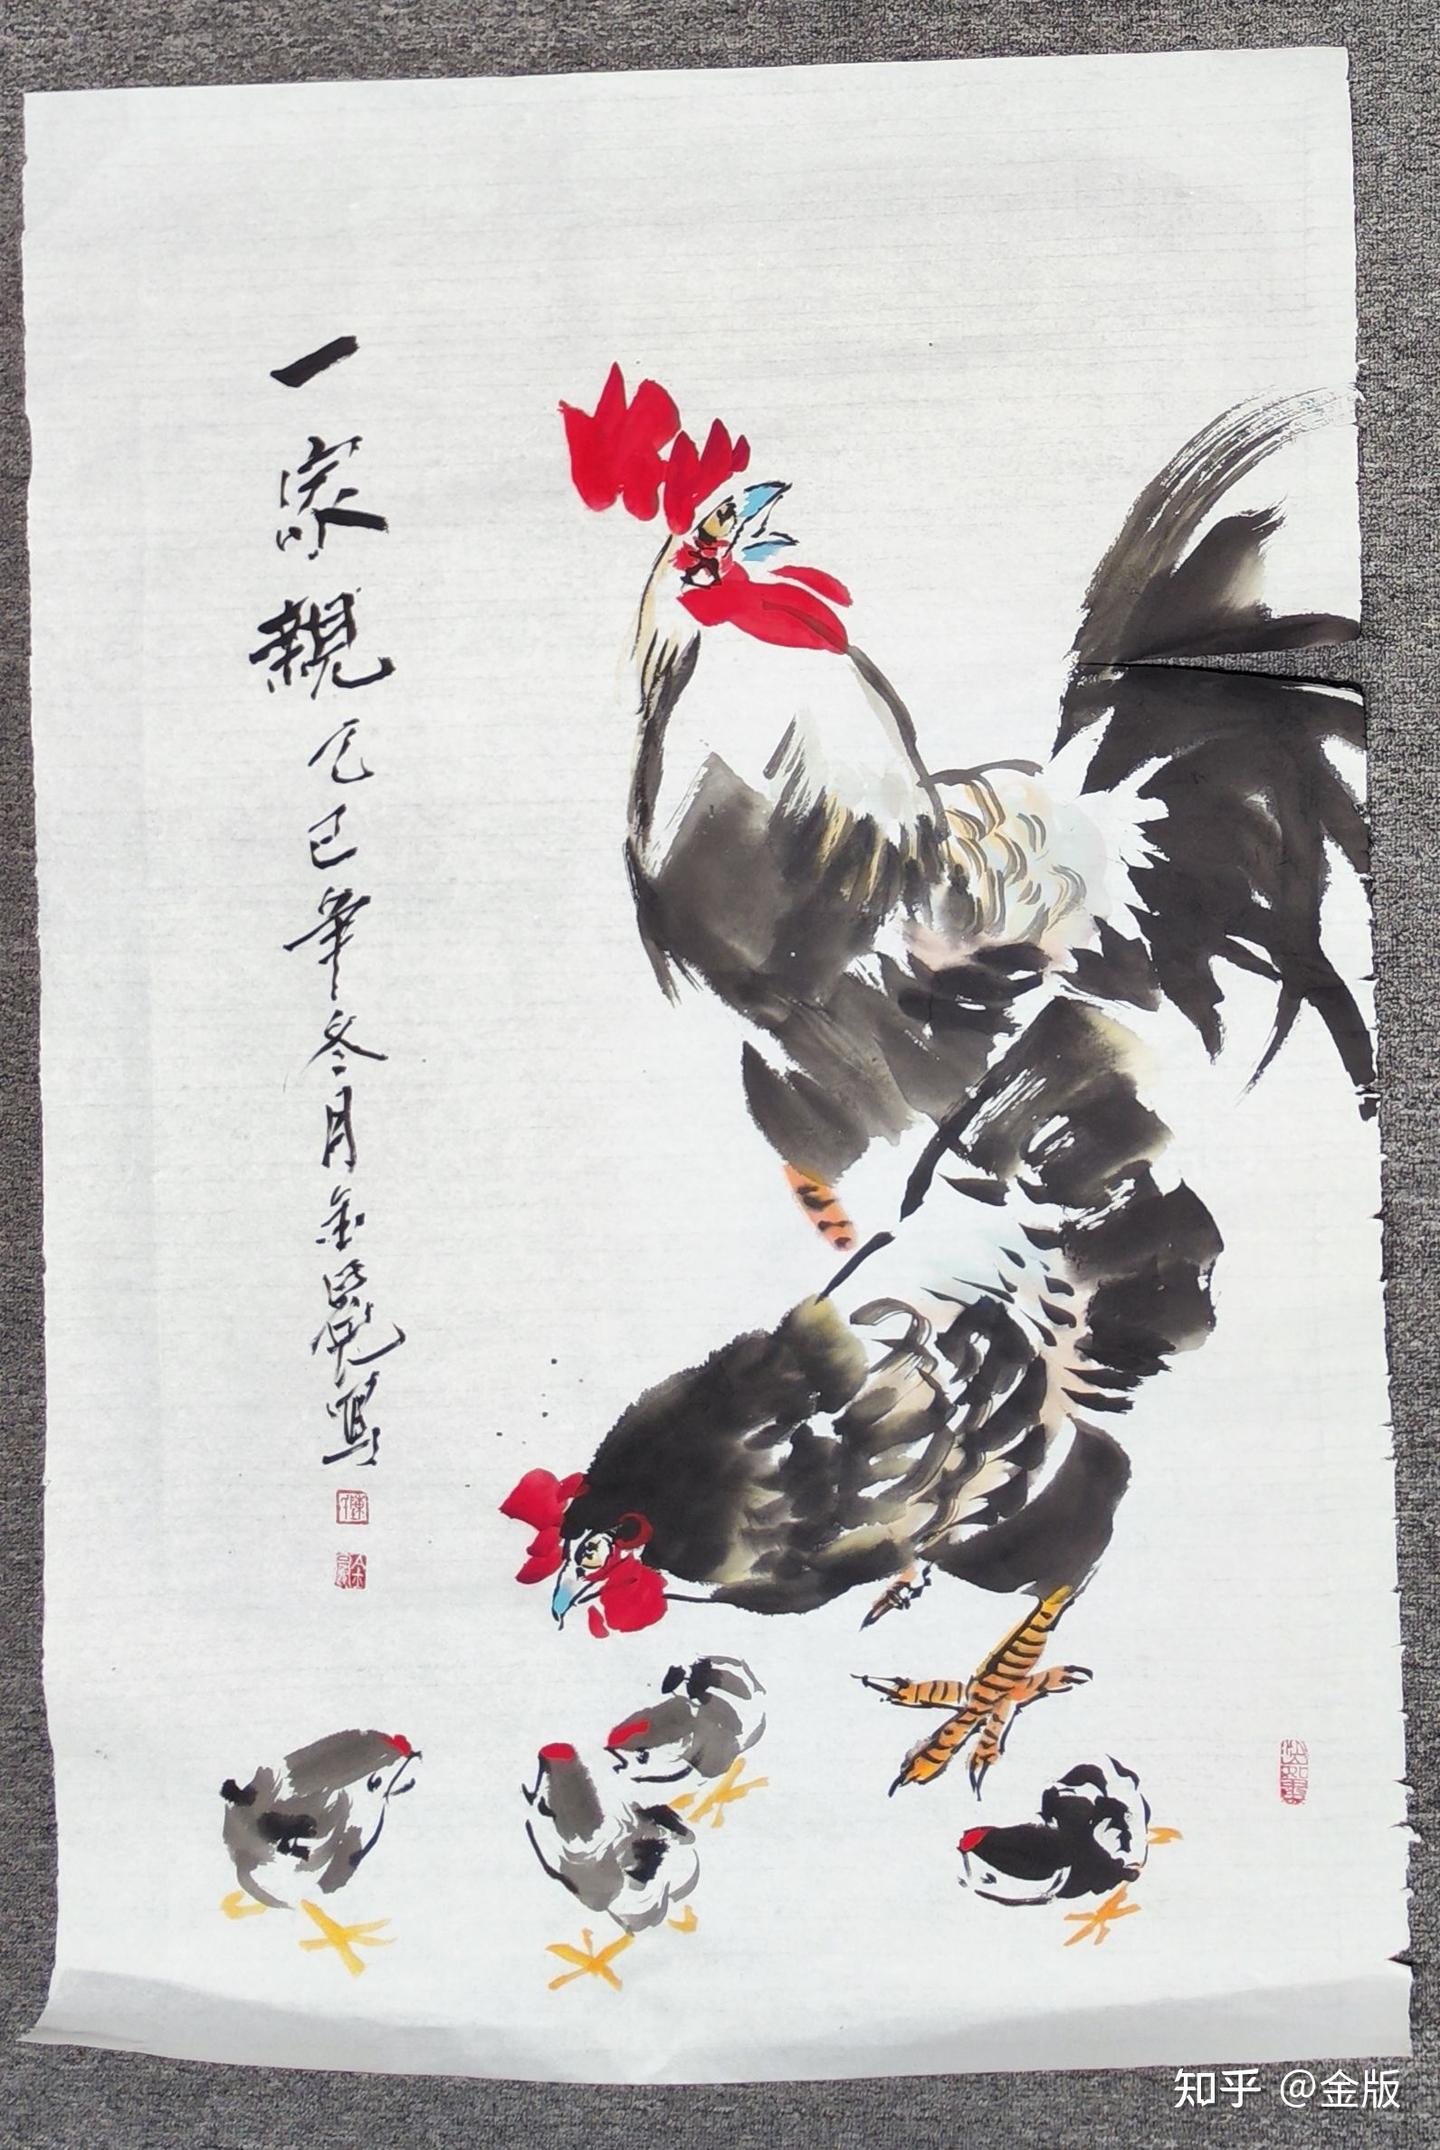 一家親
乙巳年冬月金晃寫
知乎 @金版